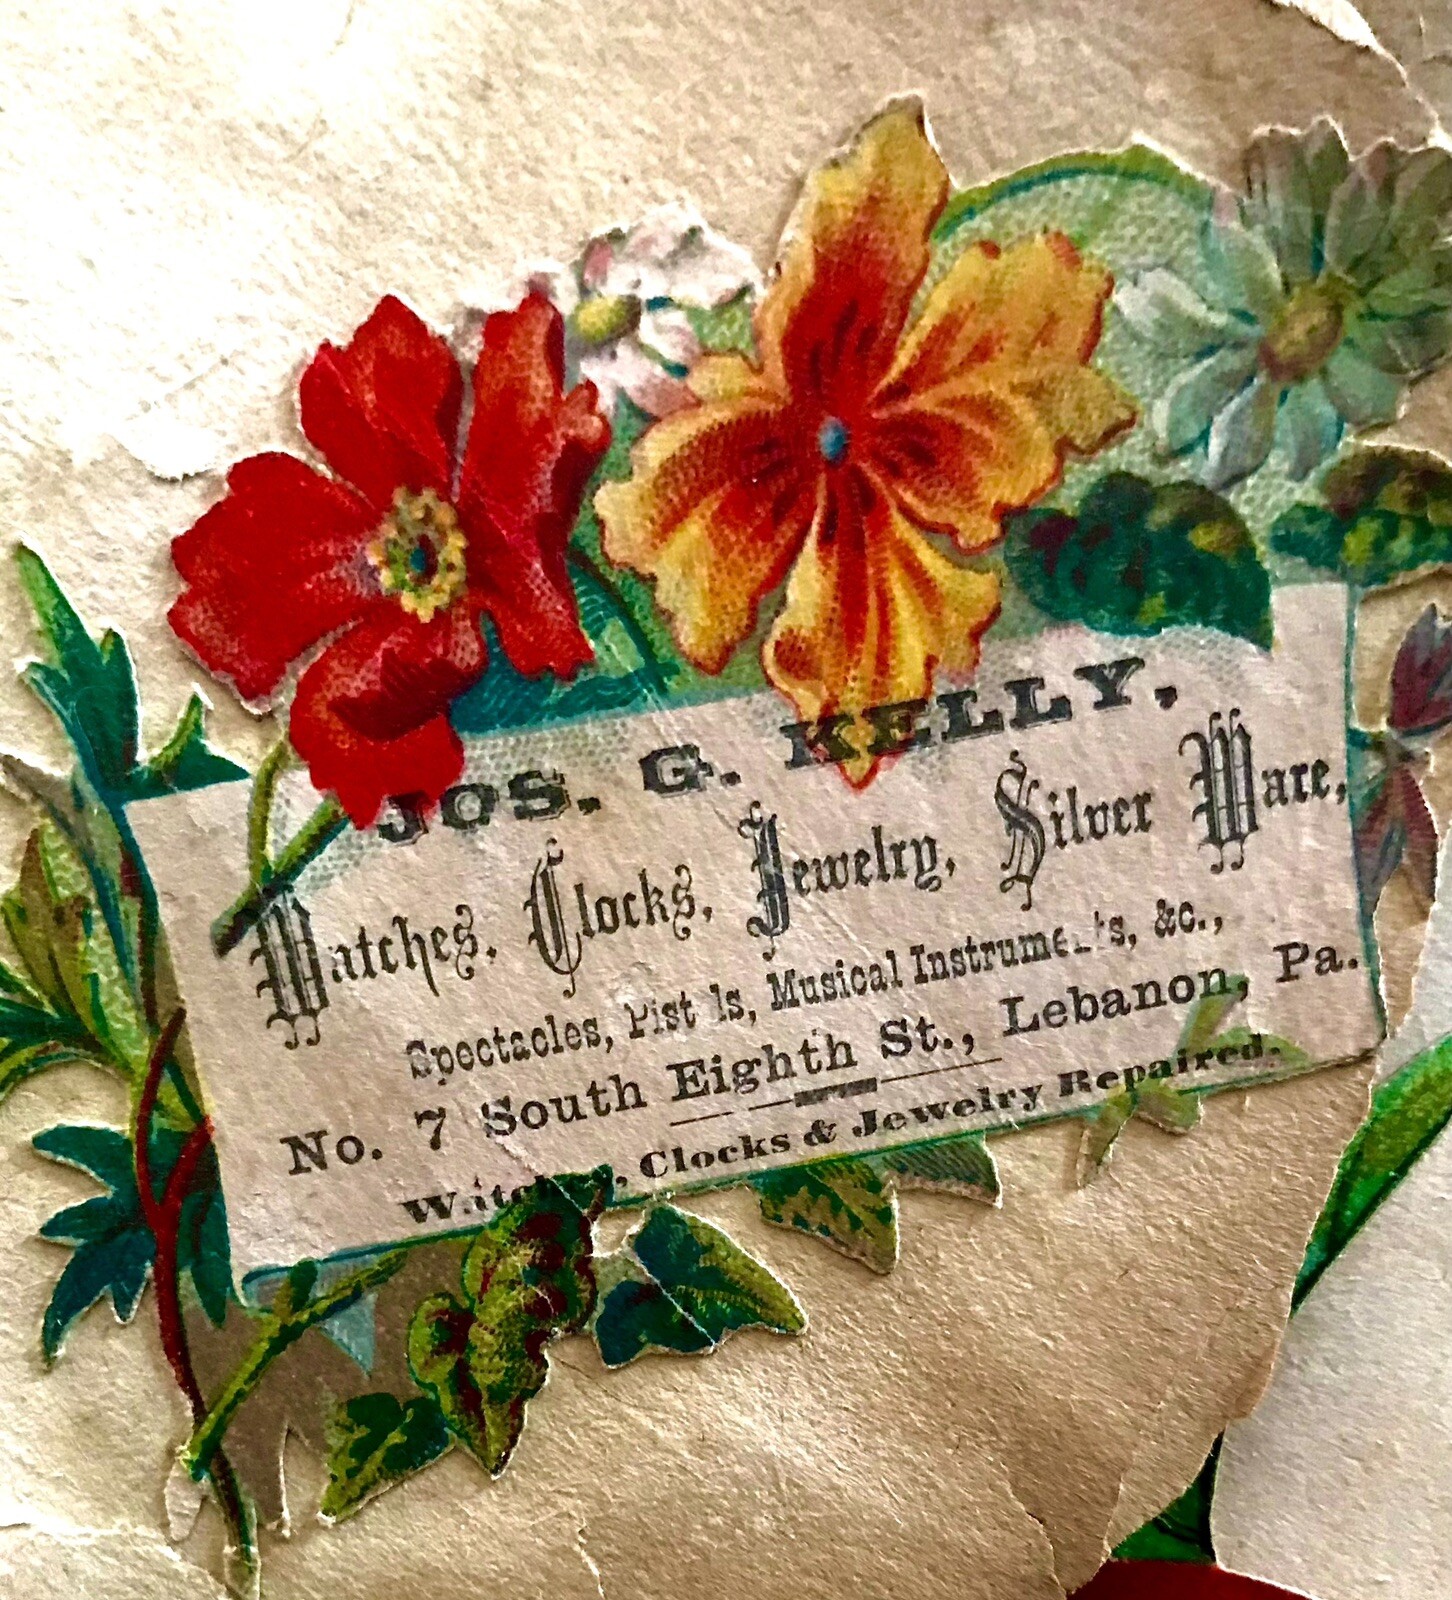 JOS. G. KELLY,
Watches, Clocks, Jewelry, Silver Ware,
Spectacles, Pistols, Musical Instruments, &c.,
No. 7 South Eighth St., Lebanon, Pa.
Watches, Clocks & Jewelry Repaired.